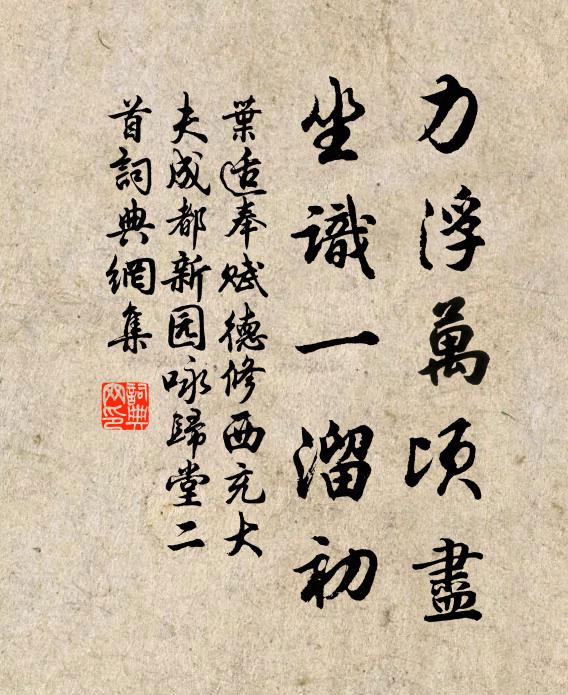 力浮萬頃盡
坐識一溜初
葉适奉賦德修西充大
夫成都新园咏歸堂二
首詞典網集
詞典
网印